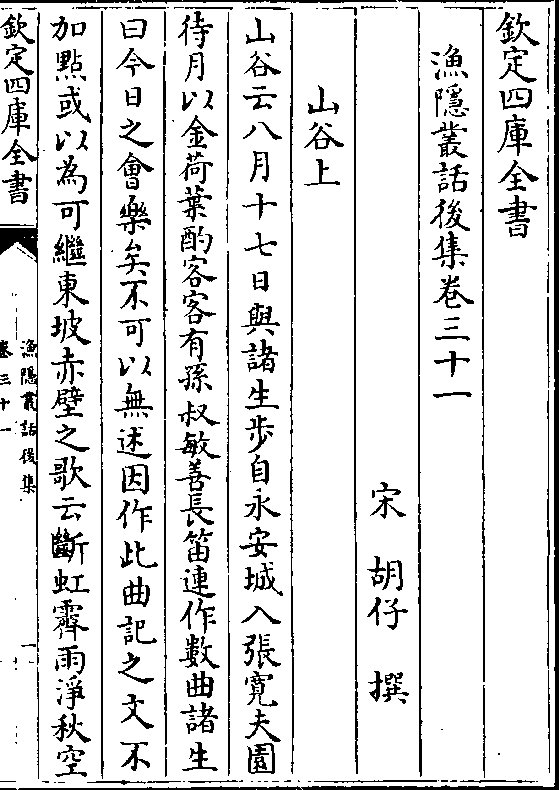 欽定四庫全書
漁隱叢話後集卷三十一
宋 胡仔 撰
山谷上
山谷云八月十七日與諸生步自永安城入張寛夫園
待月以金荷葉酌客客有孫叔敏善長笛連作數曲諸生
曰今日之會樂矣不可以無述因作此曲記之文不
加點或以為可繼東坡赤壁之歌云斷虹霽雨淨秋空
欽定四庫全書
漁隱叢話後集
卷三十一
一